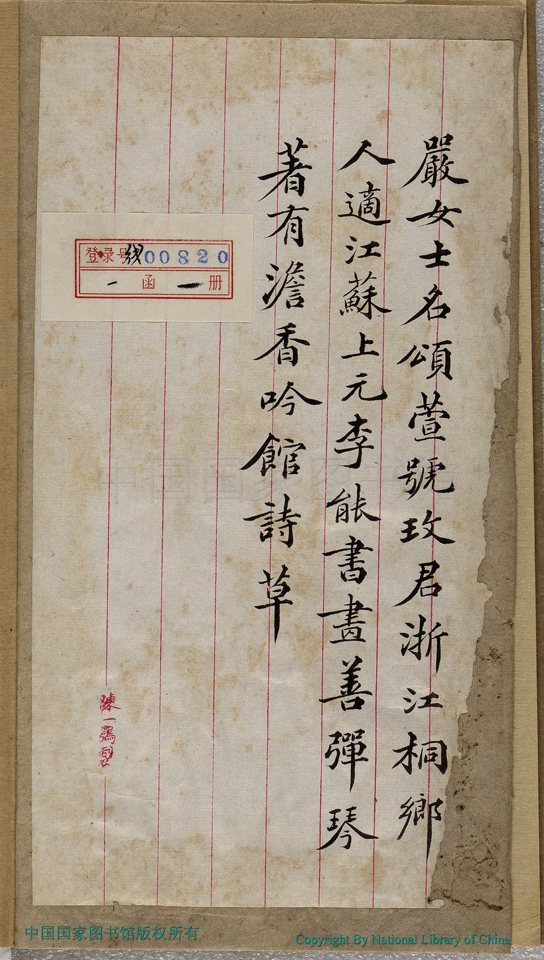 嚴女士名頌萱號玫君浙江桐鄉
人適江蘇上元李能書畫善彈琴
著有澹香吟館詩草
登录号 线00820
一 函 一 册
陳一鶚製
中国国家图书馆版权所有
Copyright By National Library of China